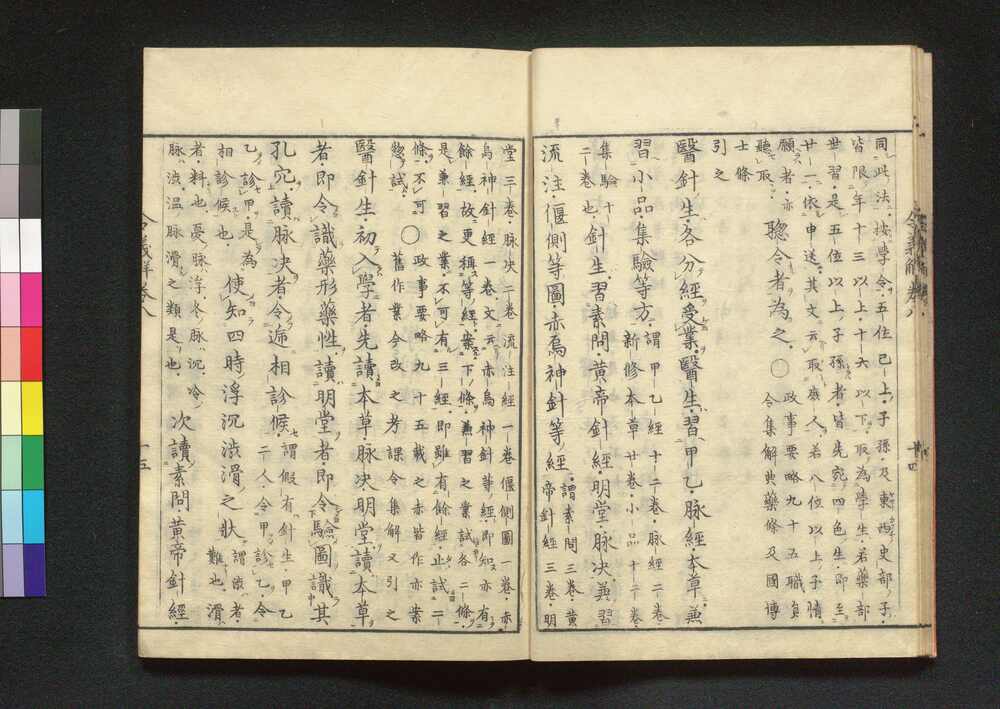 同此法。按學令。五位已上子孫。及東西史部子。
皆限年十三以上。十六以下。取為學生。若藥部
世習。是五位以上子孫者。皆先宛四色生。即至
廿一。依申送。其文云。取庶人。若八位以上子情
願者。亦
聽取。
聦令者為之。〇政事要略九十五職員
令集解典藥條及國博
士條
引之
醫針生。各分經受業。醫生。習甲乙。脉經。本草。兼
習小品。集驗等方。
謂甲乙經十二卷。脉經二卷
新修本草廿卷。小品十二卷
集驗十
二卷也。
針生。習素問。黃帝針經。明堂。脉决。兼習
流注。偃側等圖。赤烏神針等經。
謂素問三卷。黃
帝針經三卷。明
堂三卷。脉决二卷。流注經一卷。偃側圖一卷。赤
烏神針經一卷。文云亦烏神針等經。即知亦有
餘經。故更稱等經。案下條。兼習之業試各二條。
是兼習之業。不可有三經。即雖有餘經。止試二
條。不可
惣試。
〇政事要略九十五載之亦皆作亦案
舊作業今改之考課令集解又引之
醫針生。初入學者。先讀本草。脉决。明堂。讀本草
者。即令識藥形藥性。讀明堂者。即令驗圖識其
孔穴。讀脉决者。令遞相診候。
謂假有針生甲乙
二人。令甲診乙。令
乙診甲。是為
相診候也。
使知四時浮沉澁滑之狀。
謂澁者。
難也。滑
者。料也。憂脉浮。冬脉沉。冷
脉澁。溫脉滑之類是也。
次讀素問。黃帝針經。
令義解卷八
十四
令義解卷八
十五